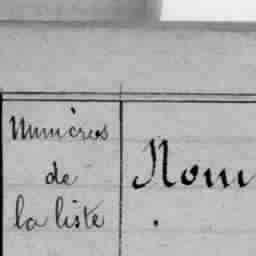 Numéros
de
la liste
Nom